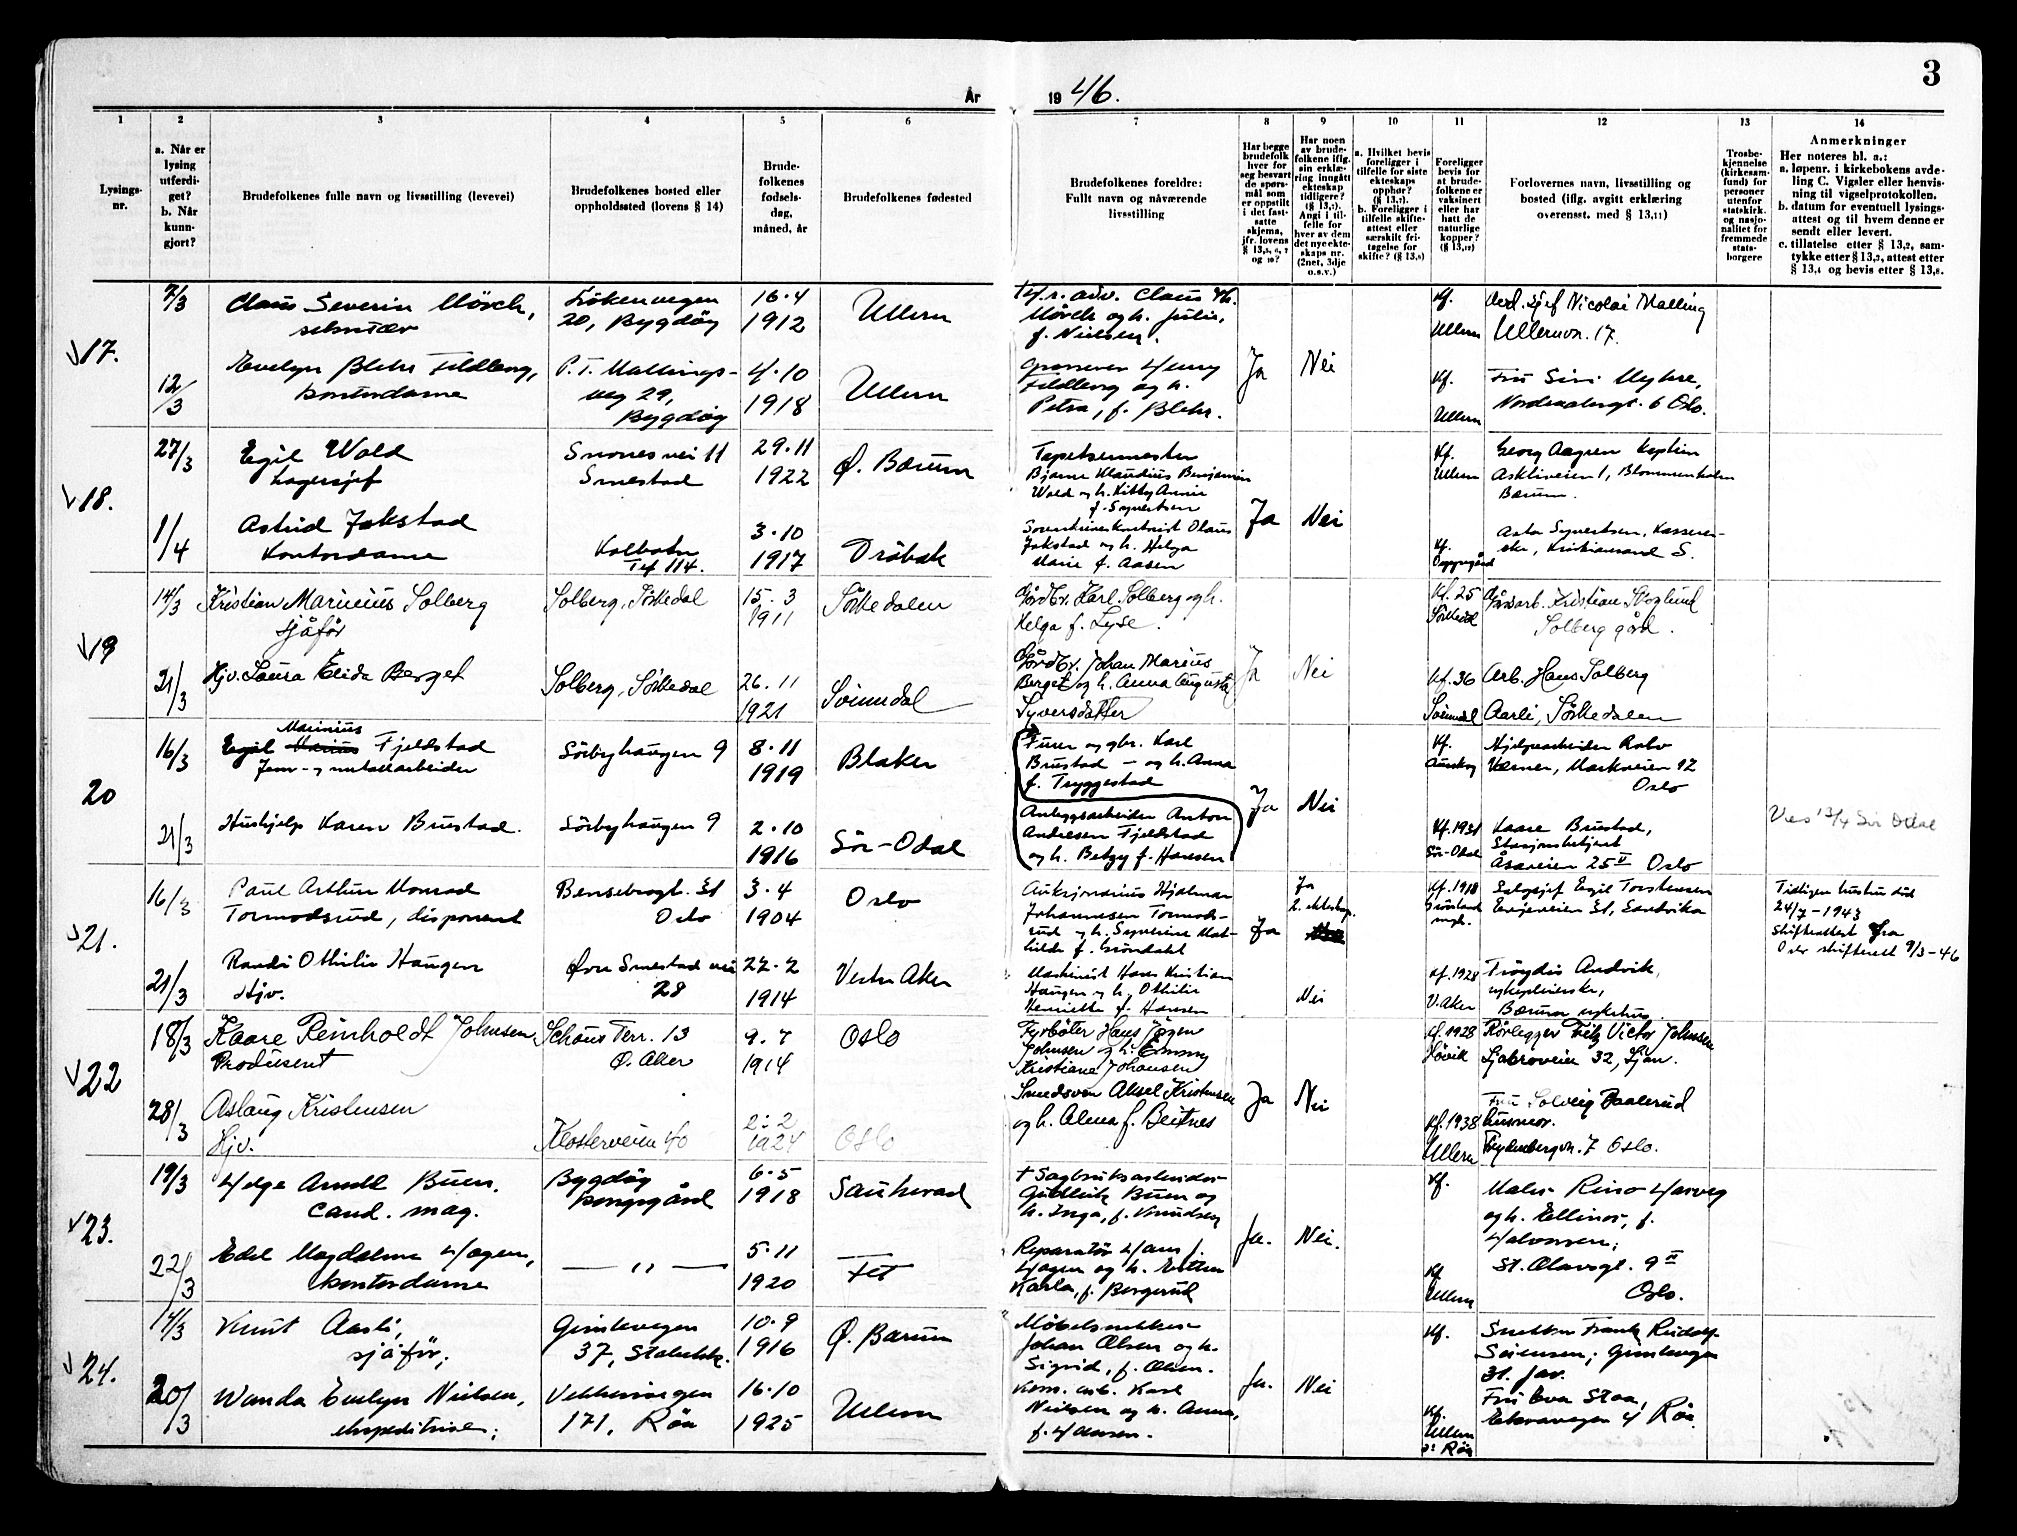 3
År
19 46.
1
2
3
4
5
6
7
8
9
10
11
12
13
14
Lysings-
nr.
a. Når er
lysing
utferdi-
get?
b. Når
kunn-
gjort?
Brudefolkenes fulle navn og livsstilling (levevei)
Brudefolkenes bosted eller
oppholdssted (lovens § 14)
Brude-
folkenes
fødsels-
dag,
måned, år
Brudefolkenes fødested
Brudefolkenes foreldre:
Fullt navn og nåværende
livsstilling
Har begge
brudefolk
hver for
seg besvart
de spørs-
mål som
er oppstilt
i det fast-
satte
skjema,
jfr. lovens
Har noen
av brude-
folkene iflg.
sin erklæ-
ring inngått
ekteskap
tidligere?
Angi i til-
felle for
hver av dem
det nye ekte-
skaps nr.
(2net, 3dje
o.s.v.)
a. Hvilket bevis
foreligger i
tilfelle for siste
ekteskaps
opphør?
b. Foreligger i
tilfelle skifte-
attest eller
særskilt fri-
tagelse for
skifte?
Foreligger
bevis for
at brude-
folkene er
vaksinert
eller har
hatt de
naturlige
kopper?
Forlovernes navn, livsstilling og
bosted (iflg. avgitt erklæring
overensst. med § 13,11)
Trosbe-
kjennelse
(kirkesam-
fund) for
personer
utenfor
statskirk.
og nasjo-
nalitet for
fremmede
stats-
borgere
Anmerkninger
Her noteres bl. a.:
a. løpenr. i kirkebokens avde-
ling C. Vigsler eller henvis-
ning til vigselprotokollen.
b. datum for eventuell lysings-
attest og til hvem denne er
sendt eller levert.
c. tillatelse etter § 13,2, sam-
tykke etter § 13,3, attest etter
§ 13,4 og bevis etter § 13,8.
17.
7/3
Claus Severin Mörch,
16.4
20, Bygdøy
1912
Ullern
Mörch og h. Julie,
f. Nielsen.
Kf.
Ullern
Nicolai Malling
Ullernvn. 17.
12/3
Evelyn Blehr Fildberg,
kontordame
Bygdøy
4.10
1918
Ullern
Petra, f. Blehr.
Ja
Nei
Kf.
Ullern
Fru Siri Myhre,
18.
27/3
Egil Wold
Lagersjef
Smestad
29.11
1922
Ø. Bærum
Tapetsermester
Bjarne Klaudius Benjamin
Kf.
Ullern
Bærum.
1/4
Astrid Jakstad
Kontordame
Kolbotn
3.10
1917
Drøbak
Jakstad og h. Helga
Marie f. Aasen
Ja
Nei
Kf.
19
14/3
Kristian Marinius Solberg
sjåfør
Solberg, Sørkedal
15.3
1911
Sørkedalen
Gårdbr. Karl Solberg og h.
Helga f. Lyse.
Kf. 25
Sørkedal
Solberg gård.
21/3
Hjv. Laura Elida Berget
Solberg, Sørkedal
26.11
1921
Gårdbr. Johan Marius
Berget og h. Anna Augusta
Syversdatter
Ja
Nei
Kf. 36
Arb. Hans Solberg
Aarli, Sørkedalen
20
16/3
Marinius
Egil Marius Fjeldstad
Jern- og metallarbeider
Sörbyhaugen 9
8.11
1919
Blaker
Brustad - og h. Anna
f. Tryggestad
Kf.
Oslo
21/3
Hushjelp Karen Brustad.
Sörbyhaugen 9
2.10
1916
Sör-Odal
Anleggsarbeider Anton
Andresen Fjeldstad
og h. Betzy f. Hansen
Ja
Nei
Kf. 1931
Sör-Odal
Kaare Brustad,
Stasjonsbetjent
Åsaveien 25 II Oslo
21.
16/3
Paul Arthur Monrad
Tormodsrud, disponent
Oslo
3.4
1904
Oslo
Johannesen Tormods-
rud og h. Syverine Mat-
hilde f. Gröndahl
Ja
Ja
2. ekteskap.
Kf. 1918
Salgssjef Egil Torstensen
Tidligere hustru död
24/7-1943
Skifteattest fra
Oslo skifterett 9/3-46
21/3
Randi Othilie Haugen
Hjv.
Øvre Smestad vei
28
27.2
1914
Vestre Aker
Maskinist Hans Kristian
Haugen og h. Othilie
Henriette f. Hansen
Nei
Kf. 1928
V. Aker
Frøydis Andvik,
sykepleierske,
Bærum sykehus.
22
18/3
Kaare Reinholdt Johnsen
Produsent
Schous Terr. 13
Ø. Aker
9.7
1914
Oslo
Fyrbøter Hans Jørgen
Johnsen og h. Emmy
Kristiane Johansen
Kf. 1928
Høvik
Rørlegger Fritz Victor Johnsen
Ljabroveien 32, Ljan.
28/3
Aslaug Kristensen
Hjv.
Klosterveien 40
2.2
1924
Oslo
Smedsven Aksel Kristensen
og h. Alma f. Beitnes
Ja
Nei
Kf. 1938
Ullern
Fru Solveig Baalerud
husmor.
23.
19/3
Helge Arndt Buen,
Cand. mag.
Bygdøy
kongsgård
6.5
1918
Sauherad
+ Sagbruksarbeider
Gudleik Buen og
h. Inga, f. Knudsen
Kf.
og h. Ellinor, f.
Halvorsen;
St. Olavsgt. 9 II
Oslo.
22/3
Edel Magdalene Hagen,
kontordame
— " —
5.11
1920
Fet
Reparatør Hans J.
Hagen og h. Esther
Karla, f. Borgerud
Ja.
Nei.
Kf.
Ullern
24.
14/3
Knut Aasli,
sjåför;
Gimlevegen
37, Stabekk.
10.9
1916
Ø. Bærum
Møbelsnekker
Johan Olsen og h.
Sigrid, f. Olsen.
Kf.
Snekker Frank Rudolf
Sörensen; Gimlevegen
31. Jar.
20/3
Wanda Evelyn Nielsen,
ekspeditrise;
Vækkerövegen
171, Röa
16.10
1925
Ullern
Nielsen og h. Anna,
f. Hansen.
Ja.
Nei
Kf.
Ullern
Röa
Fru Eva Staa,
Ekraveien 4 Röa.